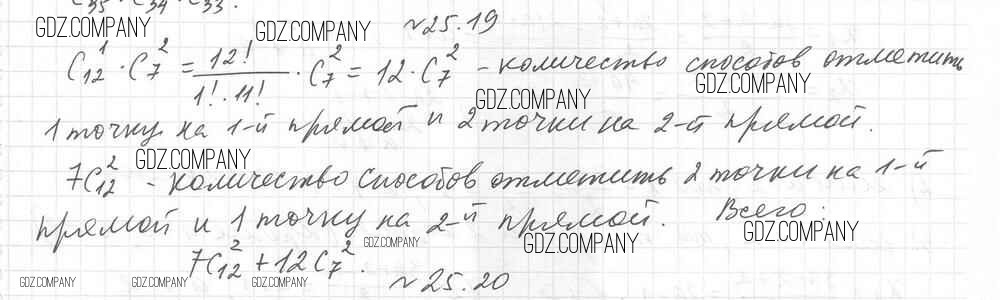 C₃₅ · C₃₄ · C₃₃.
GDZ.COMPANY GDZ.COMPANY №25.19
C₁₂¹ · C₇² = 12! / 1! · 11! · C₇² = 12 · C₇² - количество способов отметить
GDZ.COMPANY GDZ.COMPANY
1 точку на 1-й прямой и 2 точки на 2-й прямой.
GDZ.COMPANY
7C₁₂² - количество способов отметить 2 точки на 1-й
прямой и 1 точку на 2-й прямой. Всего:
GDZ.COMPANY GDZ.COMPANY GDZ.COMPANY
7C₁₂² + 12C₇².
GDZ.COMPANY GDZ.COMPANY GDZ.COMPANY №25.20